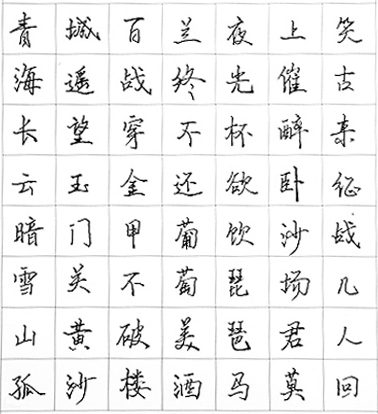 青海长云暗雪山孤
城遥望玉门关黄沙
百战穿金甲不破楼
兰终不还葡萄美酒
夜光杯欲饮琵琶马
上催醉卧沙场君莫
笑古来征战几人回